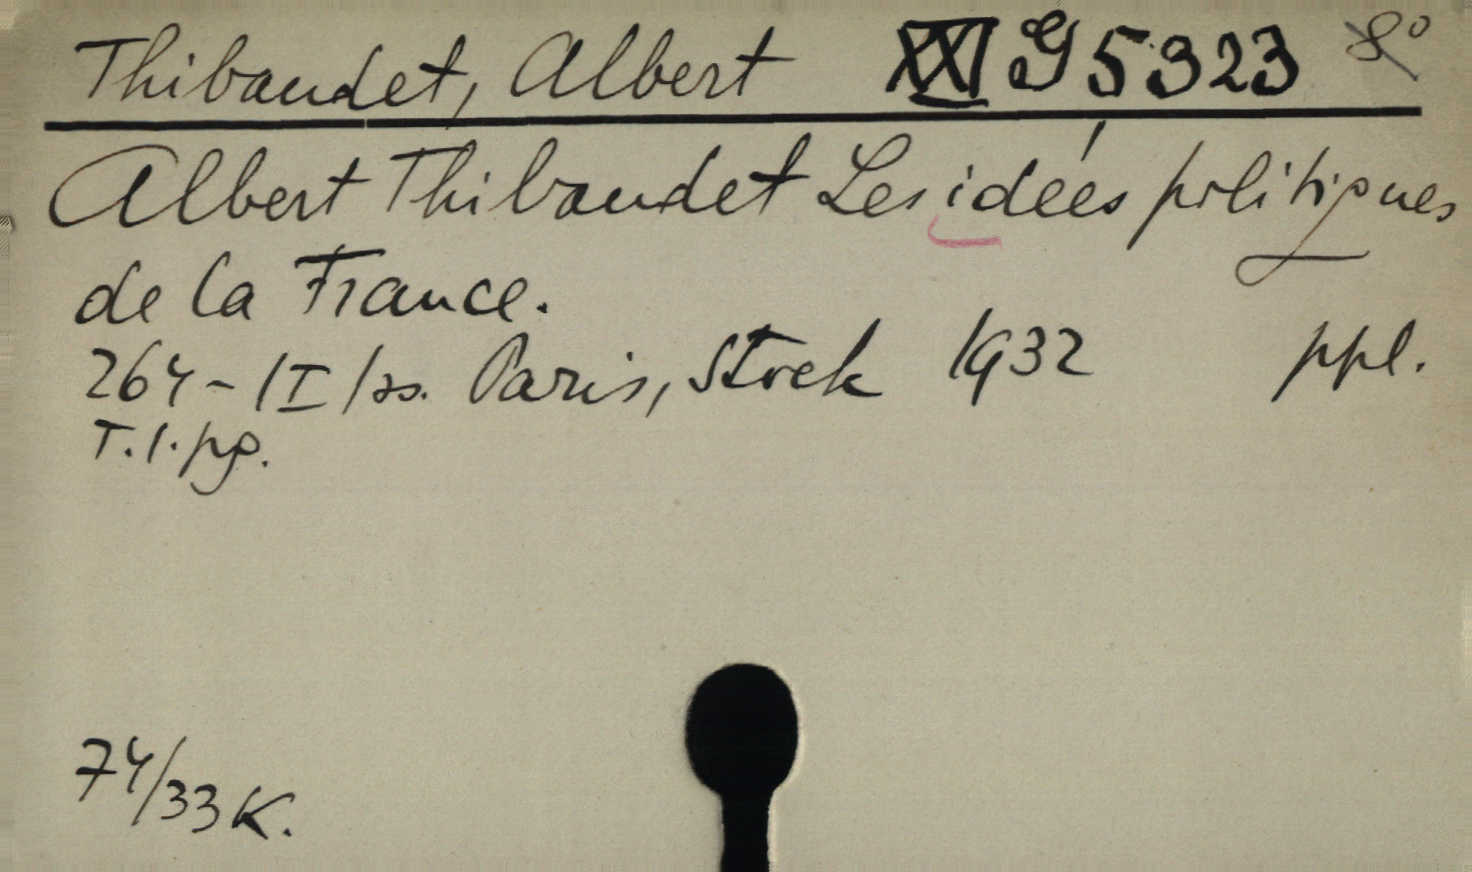 Thibaudet, Albert XXI G 5323 8°
Albert Thibaudet Les idées politiques
de la France.
264-/I/ss. Paris, Stock 1932 ppl.
T.l.pg.
74/33 K.